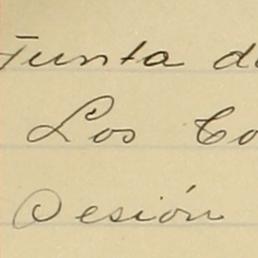 Junta de
Los Co
Sesión